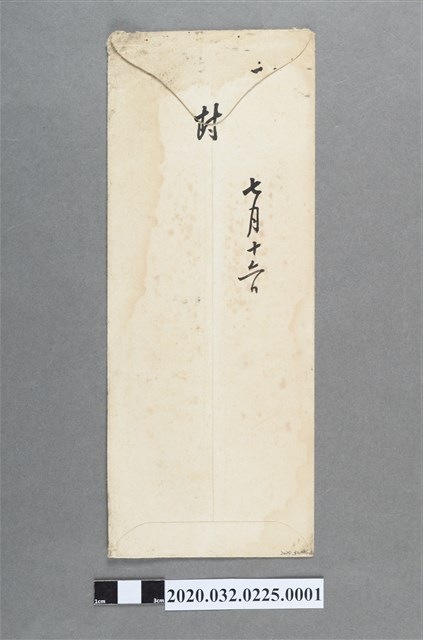 封
七月十六日
1cm
3cm
2020.032.0225.0001